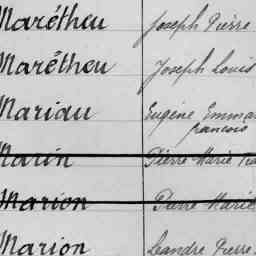 Marétheu Joseph Pierre
Marétheu Joseph Louis
Mariau Eugène Emma
francois
Marin Pierre Marie
Marion Pierre Marie
Marion Leandre Pierre